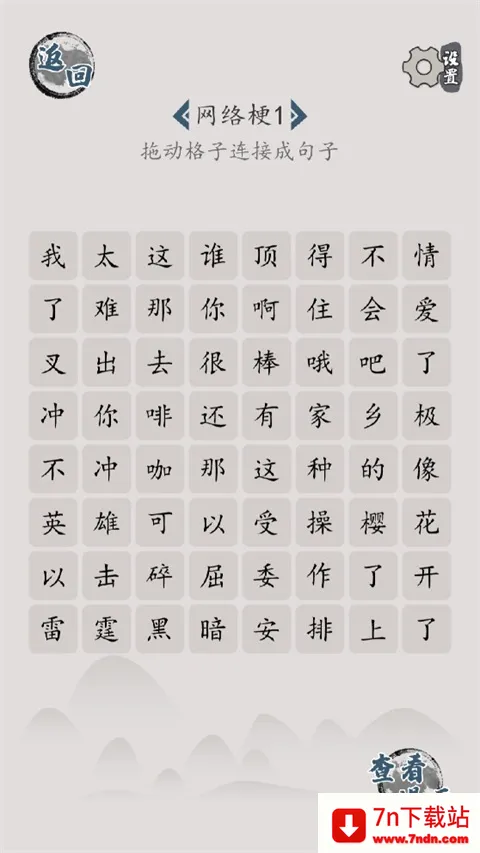 返回
设置
网络梗1
拖动格子连接成句子
我太这谁顶得不情
了难那你啊住会爱
叉出去很棒哦吧了
冲你啡还有家乡极
不冲咖那这种的像
英雄可以受操樱花
以击碎屈委作了开
雷霆黑暗安排上了
查看
7n下载站
www.7ndn.com